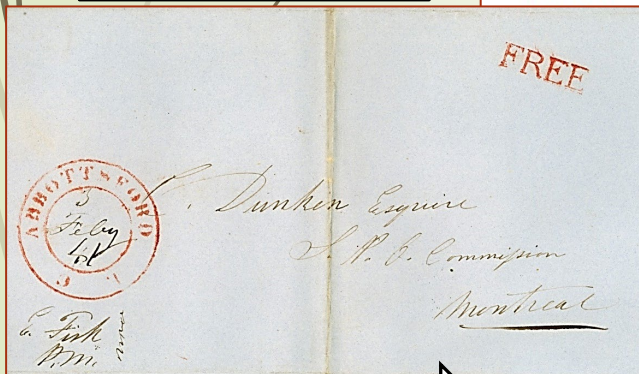 FREE
ABBOTTSFORD
3
Feby
C. Dunken Esquire
Commission
Montreal
E. Fisk
P.M.